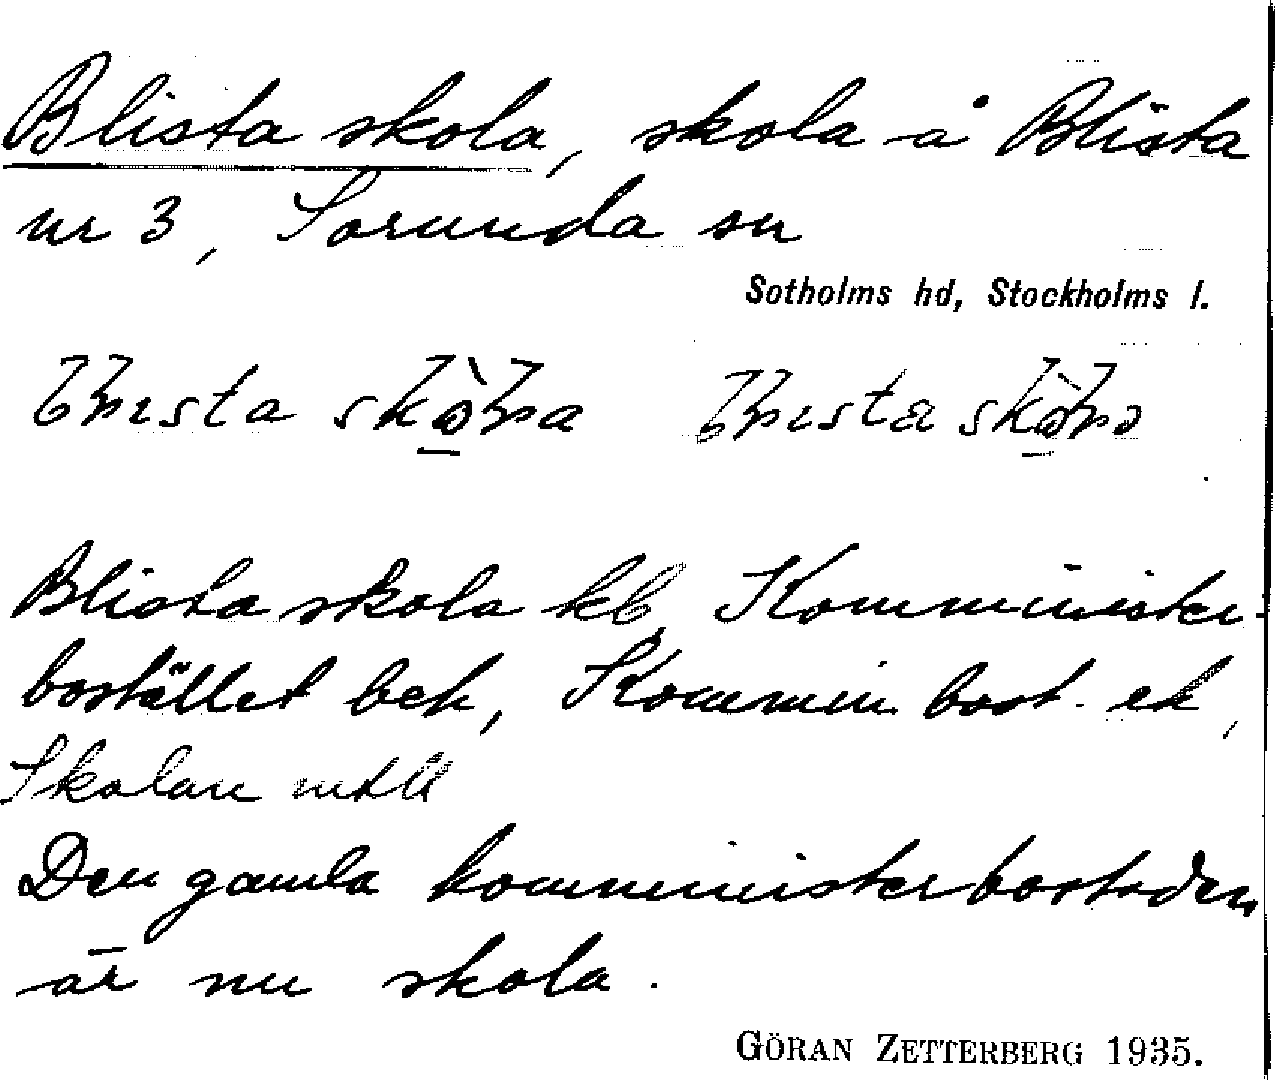 Blista skola, skola å Blista
nr 3, Sorunda sn
Sotholms hd, Stockholms l.
Blista skola kb, Komminister-
bostället bek, Kommin. bost. ek,
Skolan mtll
Den gamla komministerbostaden
är nu skola.
GÖRAN ZETTERBERG 1935.